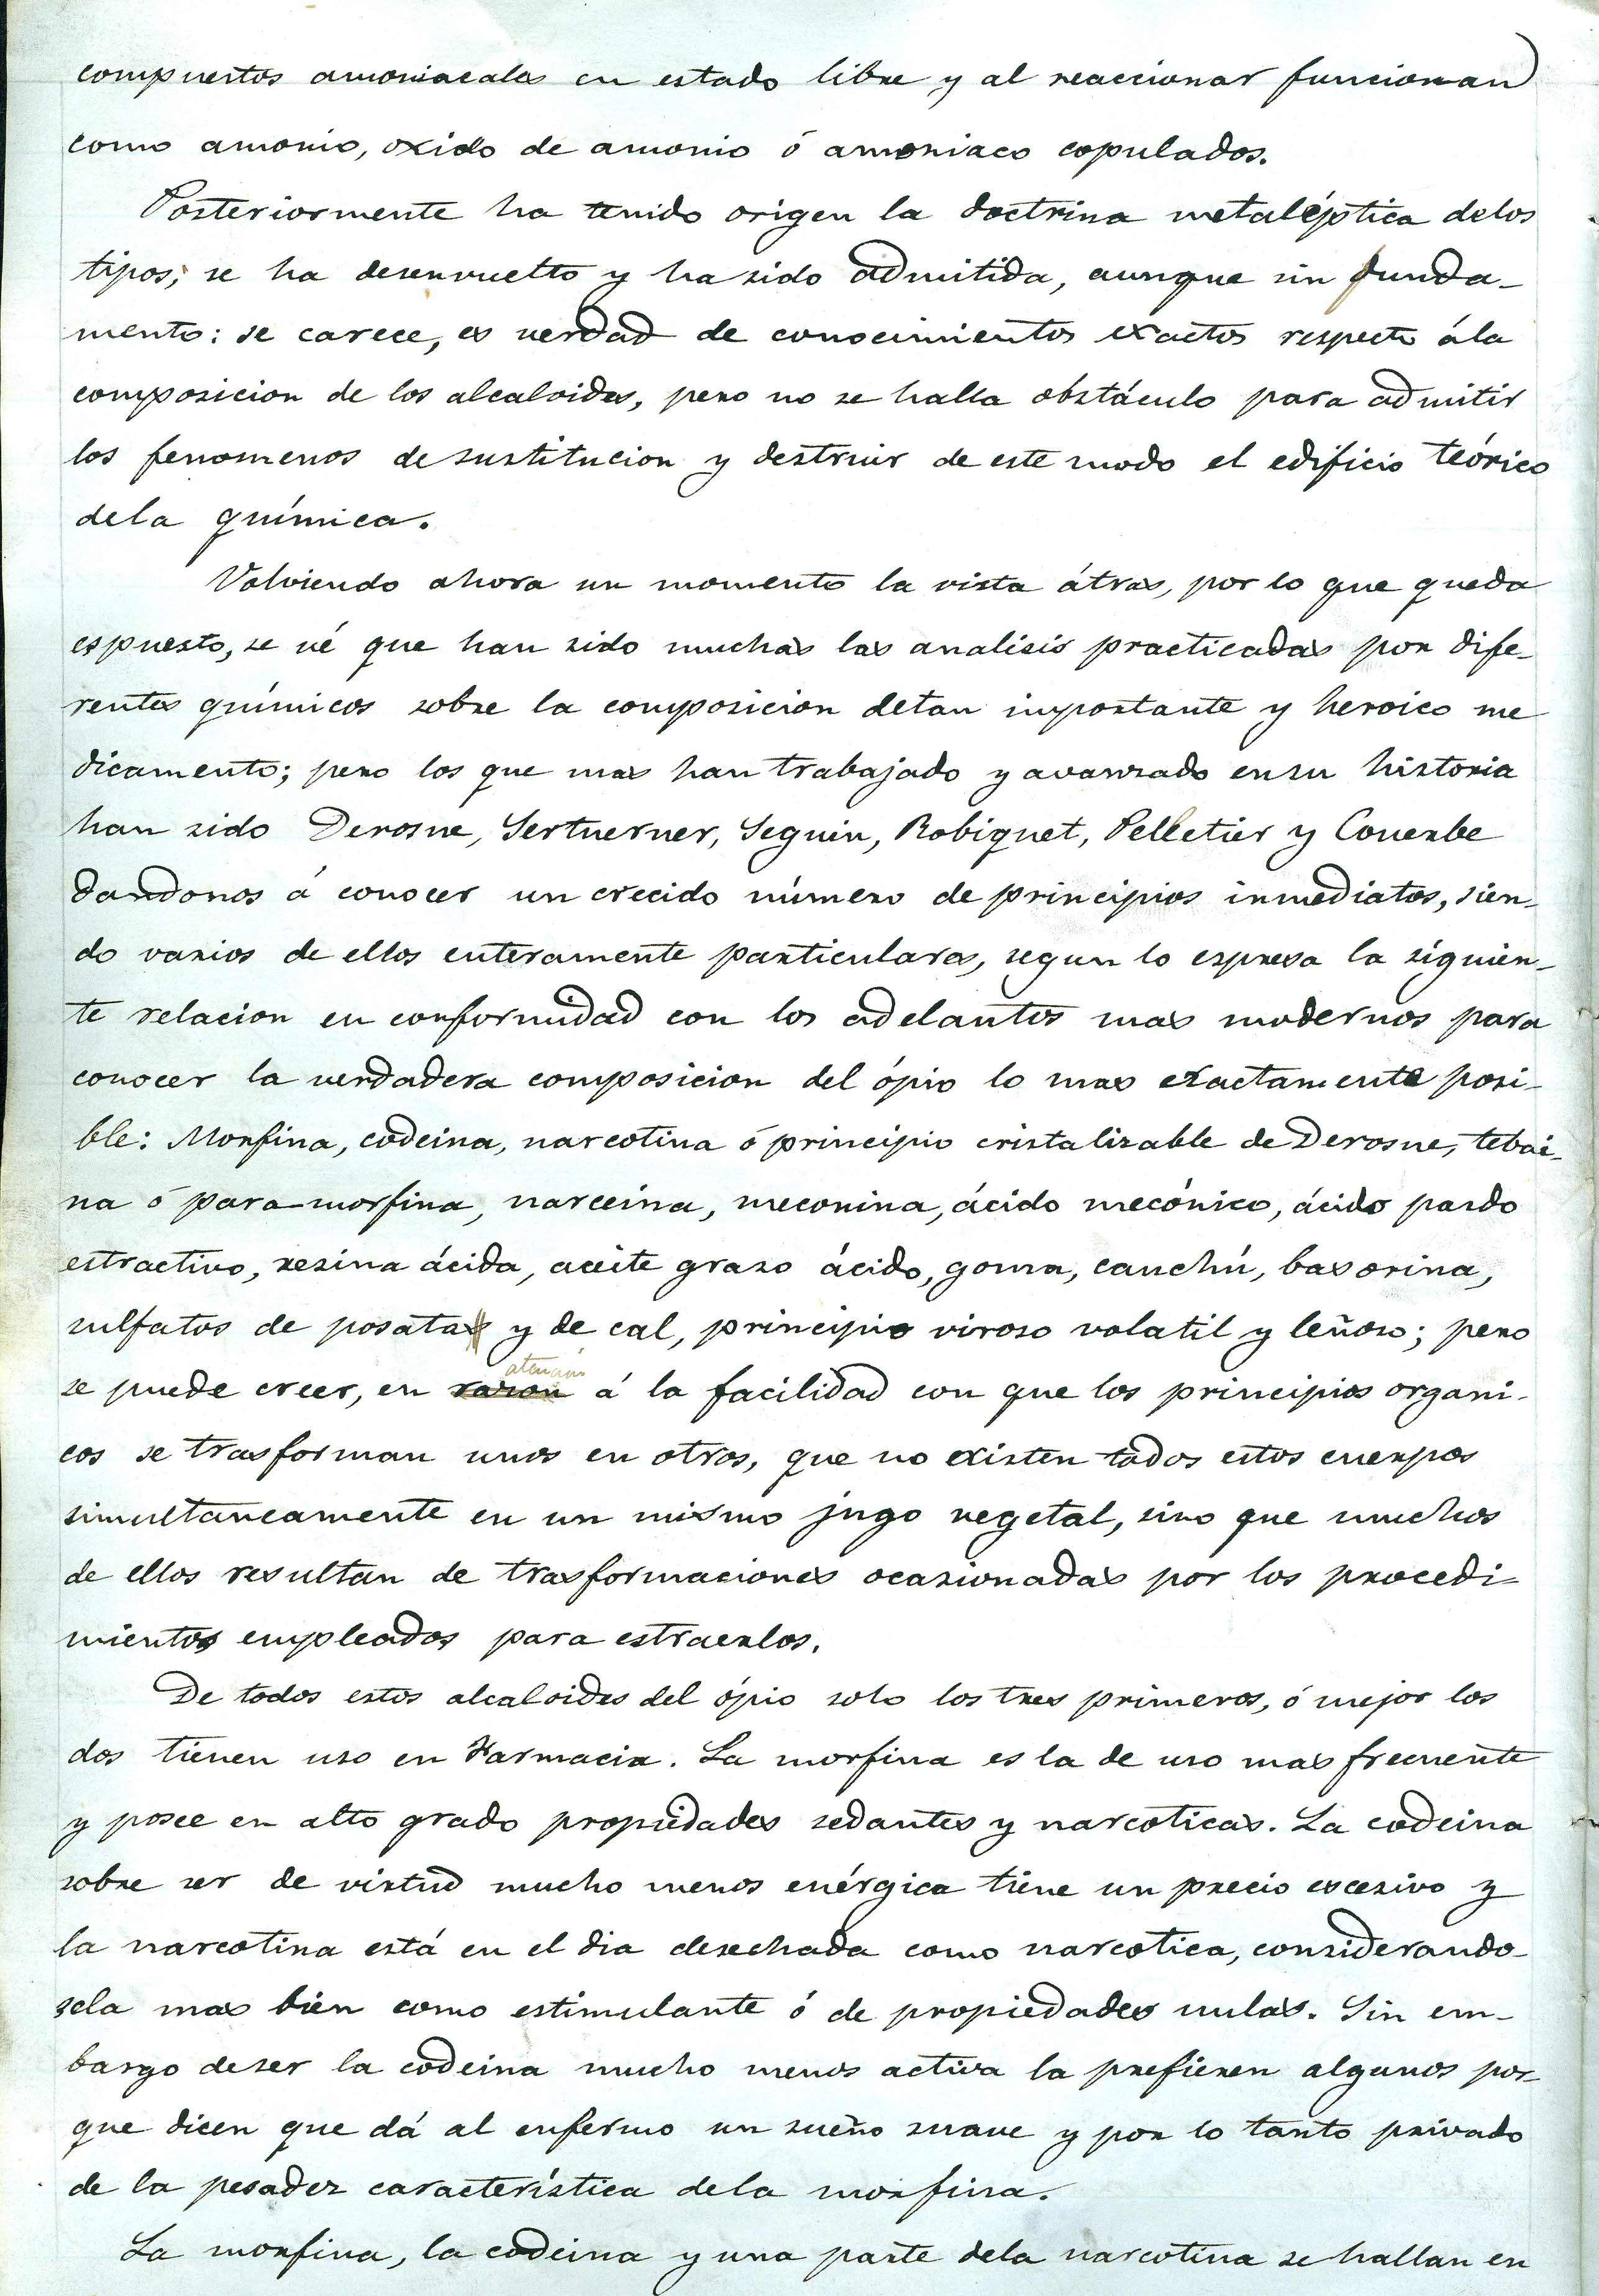 compuestos amoniacales en estado libre y al reaccionar funcionan
como amonio, oxido de amonio ó amoniaco copulados.
Posteriormente ha tenido origen la doctrina metaléptica delos
tipos; se ha desenvuelto y ha sido admitida, aunque sin funda-
mento: se carece, es verdad de conocimientos exactos respecto ála
composicion de los alcaloides, pero no se halla obstáculo para admitir
los fenomenos de sustitucion y destruir de este modo el edificio teórico
dela química.
Volviendo ahora un momento la vista átras, por lo que queda
espuesto, se vé que han sido muchas las analisis practicadas por dife-
rentes químicos sobre la composicion detan importante y heroico me
dicamento; pero los que mas han trabajado y avanzado ensu historia
han sido Derosne, Sertuerner, Seguin, Robiquet, Pelletier y Couerbe
dandonos á conocer un crecido número de principios inmediatos, sien-
do varios de ellos enteramente particulares, segun lo espresa la siguien-
te relacion en conformidad con los adelantos mas modernos para
conocer la verdadera composicion del ópio lo mas exactamente posi-
ble: Morfina, codeina, narcotina ó principio cristalizable de Derosne, tebai-
na ó para-morfina, narceina, meconina, ácido mecónico, ácido pardo
estractivo, resina ácida, aceite graso ácido, goma, cauchú, basorina,
sulfatos de posatas y de cal, principio viroso volatil y leñoso; pero
atencion
se puede creer, en razon á la facilidad con que los principios organi-
cos se trasforman unos en otros, que no existen todos estos cuerpos
simultaneamente en un mismo jugo vegetal, sino que muchos
de ellos resultan de trasformaciones ocasionadas por los procedi-
mientos empleados para estraerlos.
De todos estos alcaloides del ópio solo los tres primeros, ó mejor los
dos tienen uso en Farmacia. La morfina es la de uso mas frecuente
y posee en alto grado propiedades sedantes y narcoticas. La codeina
sobre ser de virtud mucho menos enérgica tiene un precio escesivo y
la narcotina está en el dia desechada como narcotica, considerando-
sela mas bien como estimulante ó de propiedades nulas. Sin em-
bargo deser la codeina mucho menos activa la prefieren algunos por-
que dicen que dá al enfermo un sueño suave y por lo tanto privado
de la pesadez característica dela morfina.
La morfina, la codeina y una parte dela narcotina se hallan en